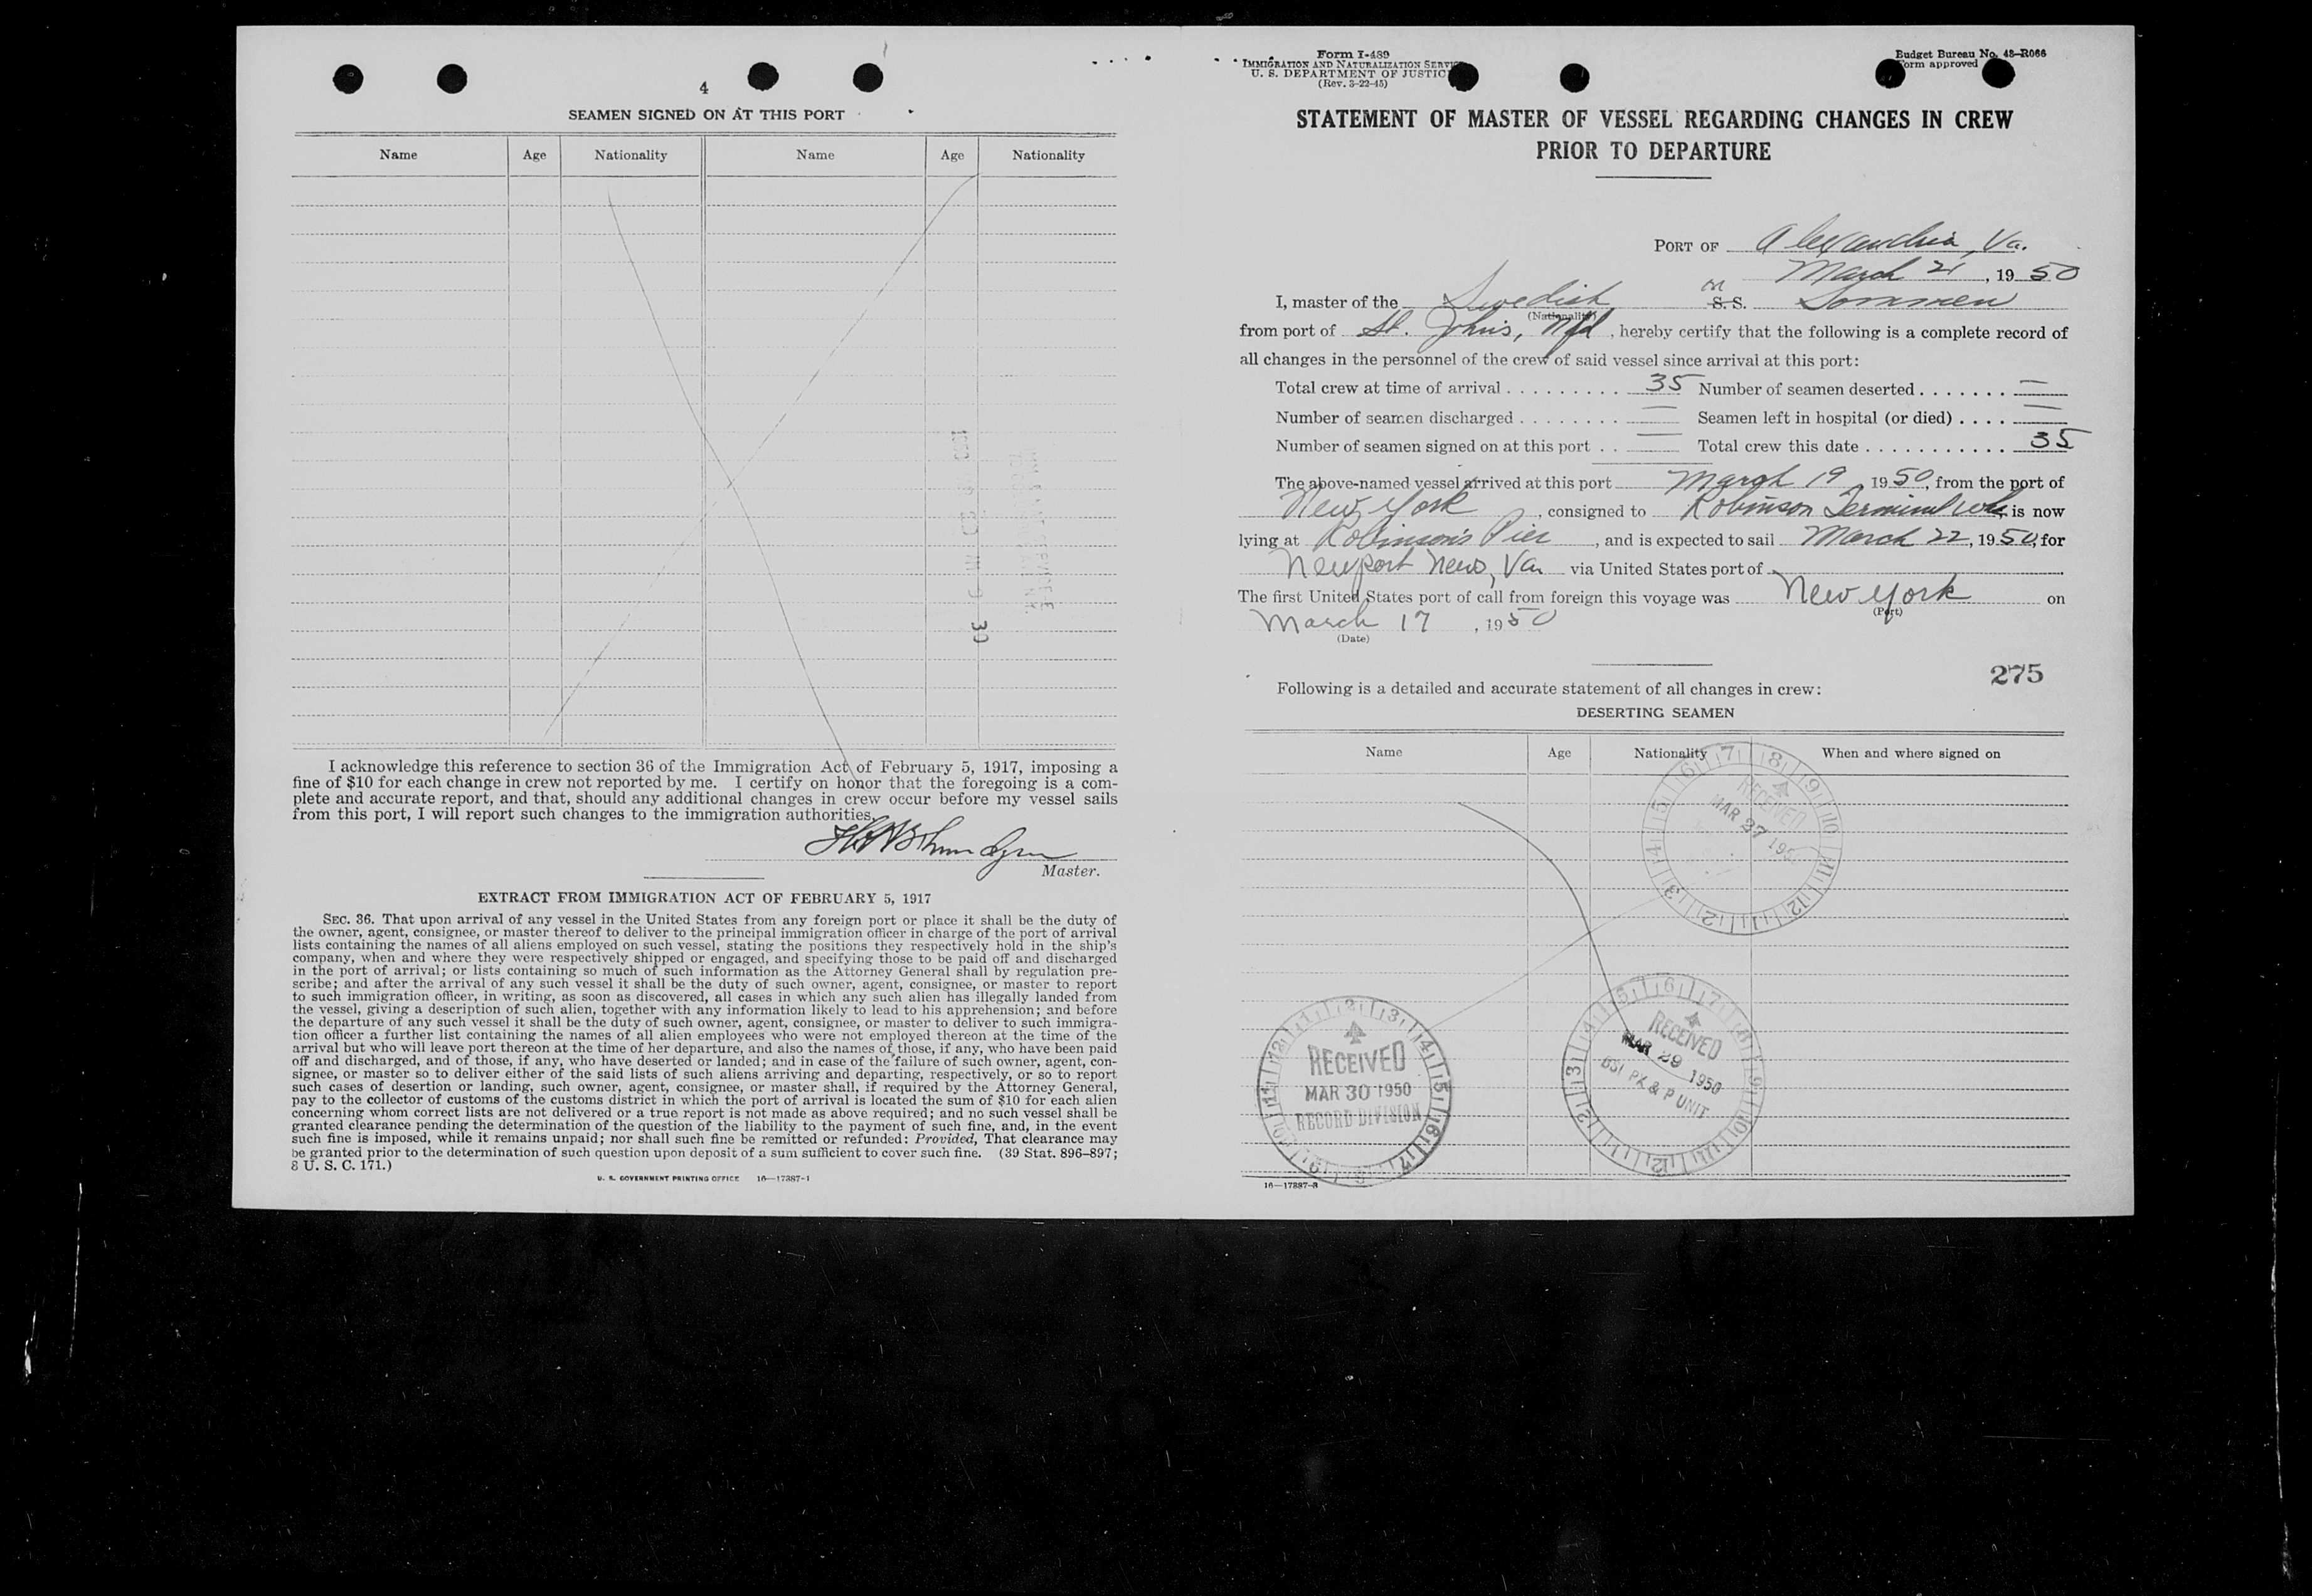 4
SEAMEN SIGNED ON AT THIS PORT
Name Age Nationality Name Age Nationality
I acknowledge this reference to section 36 of the Immigration Act of February 5, 1917, imposing a
fine of $10 for each change in crew not reported by me. I certify on honor that the foregoing is a com-
plete and accurate report, and that, should any additional changes in crew occur before my vessel sails
from this port, I will report such changes to the immigration authorities.
Master.
EXTRACT FROM IMMIGRATION ACT OF FEBRUARY 5, 1917
SEC. 36. That upon arrival of any vessel in the United States from any foreign port or place it shall be the duty of
the owner, agent, consignee, or master thereof to deliver to the principal immigration officer in charge of the port of arrival
lists containing the names of all aliens employed on such vessel, stating the positions they respectively hold in the ship's
company, when and where they were respectively shipped or engaged, and specifying those to be paid off and discharged
in the port of arrival; or lists containing so much of such information as the Attorney General shall by regulation pre-
scribe; and after the arrival of any such vessel it shall be the duty of such owner, agent, consignee, or master to report
to such immigration officer, in writing, as soon as discovered, all cases in which any such alien has illegally landed from
the vessel, giving a description of such alien, together with any information likely to lead to his apprehension; and before
the departure of any such vessel it shall be the duty of such owner, agent, consignee, or master to deliver to such immigra-
tion officer a further list containing the names of all alien employees who were not employed thereon at the time of the
arrival but who will leave port thereon at the time of her departure, and also the names of those, if any, who have been paid
off and discharged, and of those, if any, who have deserted or landed; and in case of the failure of such owner, agent, con-
signee, or master so to deliver either of the said lists of such aliens arriving and departing, respectively, or so to report
such cases of desertion or landing, such owner, agent, consignee, or master shall, if required by the Attorney General,
pay to the collector of customs of the customs district in which the port of arrival is located the sum of $10 for each alien
concerning whom correct lists are not delivered or a true report is not made as above required; and no such vessel shall be
granted clearance pending the determination of the question of the liability to the payment of such fine, and, in the event
such fine is imposed, while it remains unpaid; nor shall such fine be remitted or refunded: Provided, That clearance may
be granted prior to the determination of such question upon deposit of a sum sufficient to cover such fine. (39 Stat. 896–897;
8 U. S. C. 171.)
U. S. GOVERNMENT PRINTING OFFICE 16—17387-1
Form I-489
IMMIGRATION AND NATURALIZATION SERVICE
U. S. DEPARTMENT OF JUSTICE
(Rev. 3-22-45)
Budget Bureau No. 43–R066
Form approved
STATEMENT OF MASTER OF VESSEL REGARDING CHANGES IN CREW
PRIOR TO DEPARTURE
PORT OF Alexandria, Va.
March 21, 1950
I, master of the Swedish S. S. Sommen
(Nationality)
from port of St. John's, Nfd, hereby certify that the following is a complete record of
all changes in the personnel of the crew of said vessel since arrival at this port:
Total crew at time of arrival . . . . . . . . . 35 Number of seamen deserted . . . . . . . —
Number of seamen discharged . . . . . . . . — Seamen left in hospital (or died) . . . . —
Number of seamen signed on at this port . . — Total crew this date . . . . . . . . . . . 35
The above-named vessel arrived at this port March 19, 1950, from the port of
New York, consigned to Robinson Terminal is now
lying at Robinson's Pier, and is expected to sail March 22, 1950, for
Newport News, Va via United States port of
The first United States port of call from foreign this voyage was New York on
(Port)
March 17, 1950
(Date)
275
Following is a detailed and accurate statement of all changes in crew:
DESERTING SEAMEN
Name Age Nationality When and where signed on
RECEIVED
MAR 27 195
RECEIVED
MAR 29 1950
BSI PX & P UNIT
RECEIVED
MAR 30 1950
RECORD DIVISION